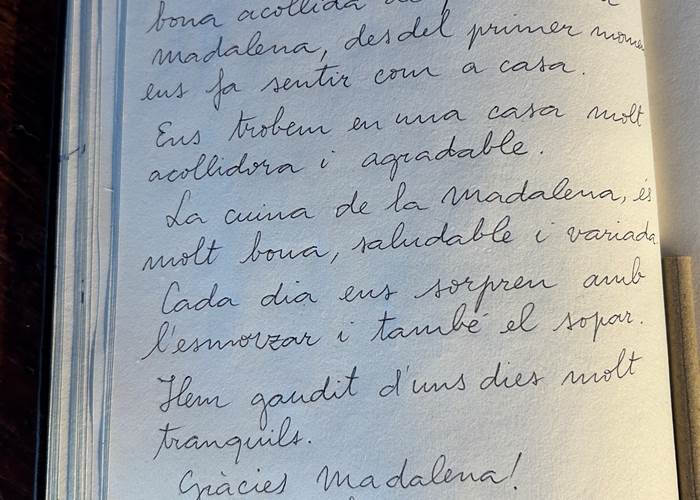 bona acollida
madalena, des del primer mom
ens fa sentir com a casa.
Ens trobem en una casa molt
acollidora i agradable.
La cuina de la Madalena, és
molt bona, saludable i variada
Cada dia ens sorpren amb
l'esmorzar i també el sopar.
Hem gaudit d'uns dies molt
tranquils.
Gràcies Madalena!